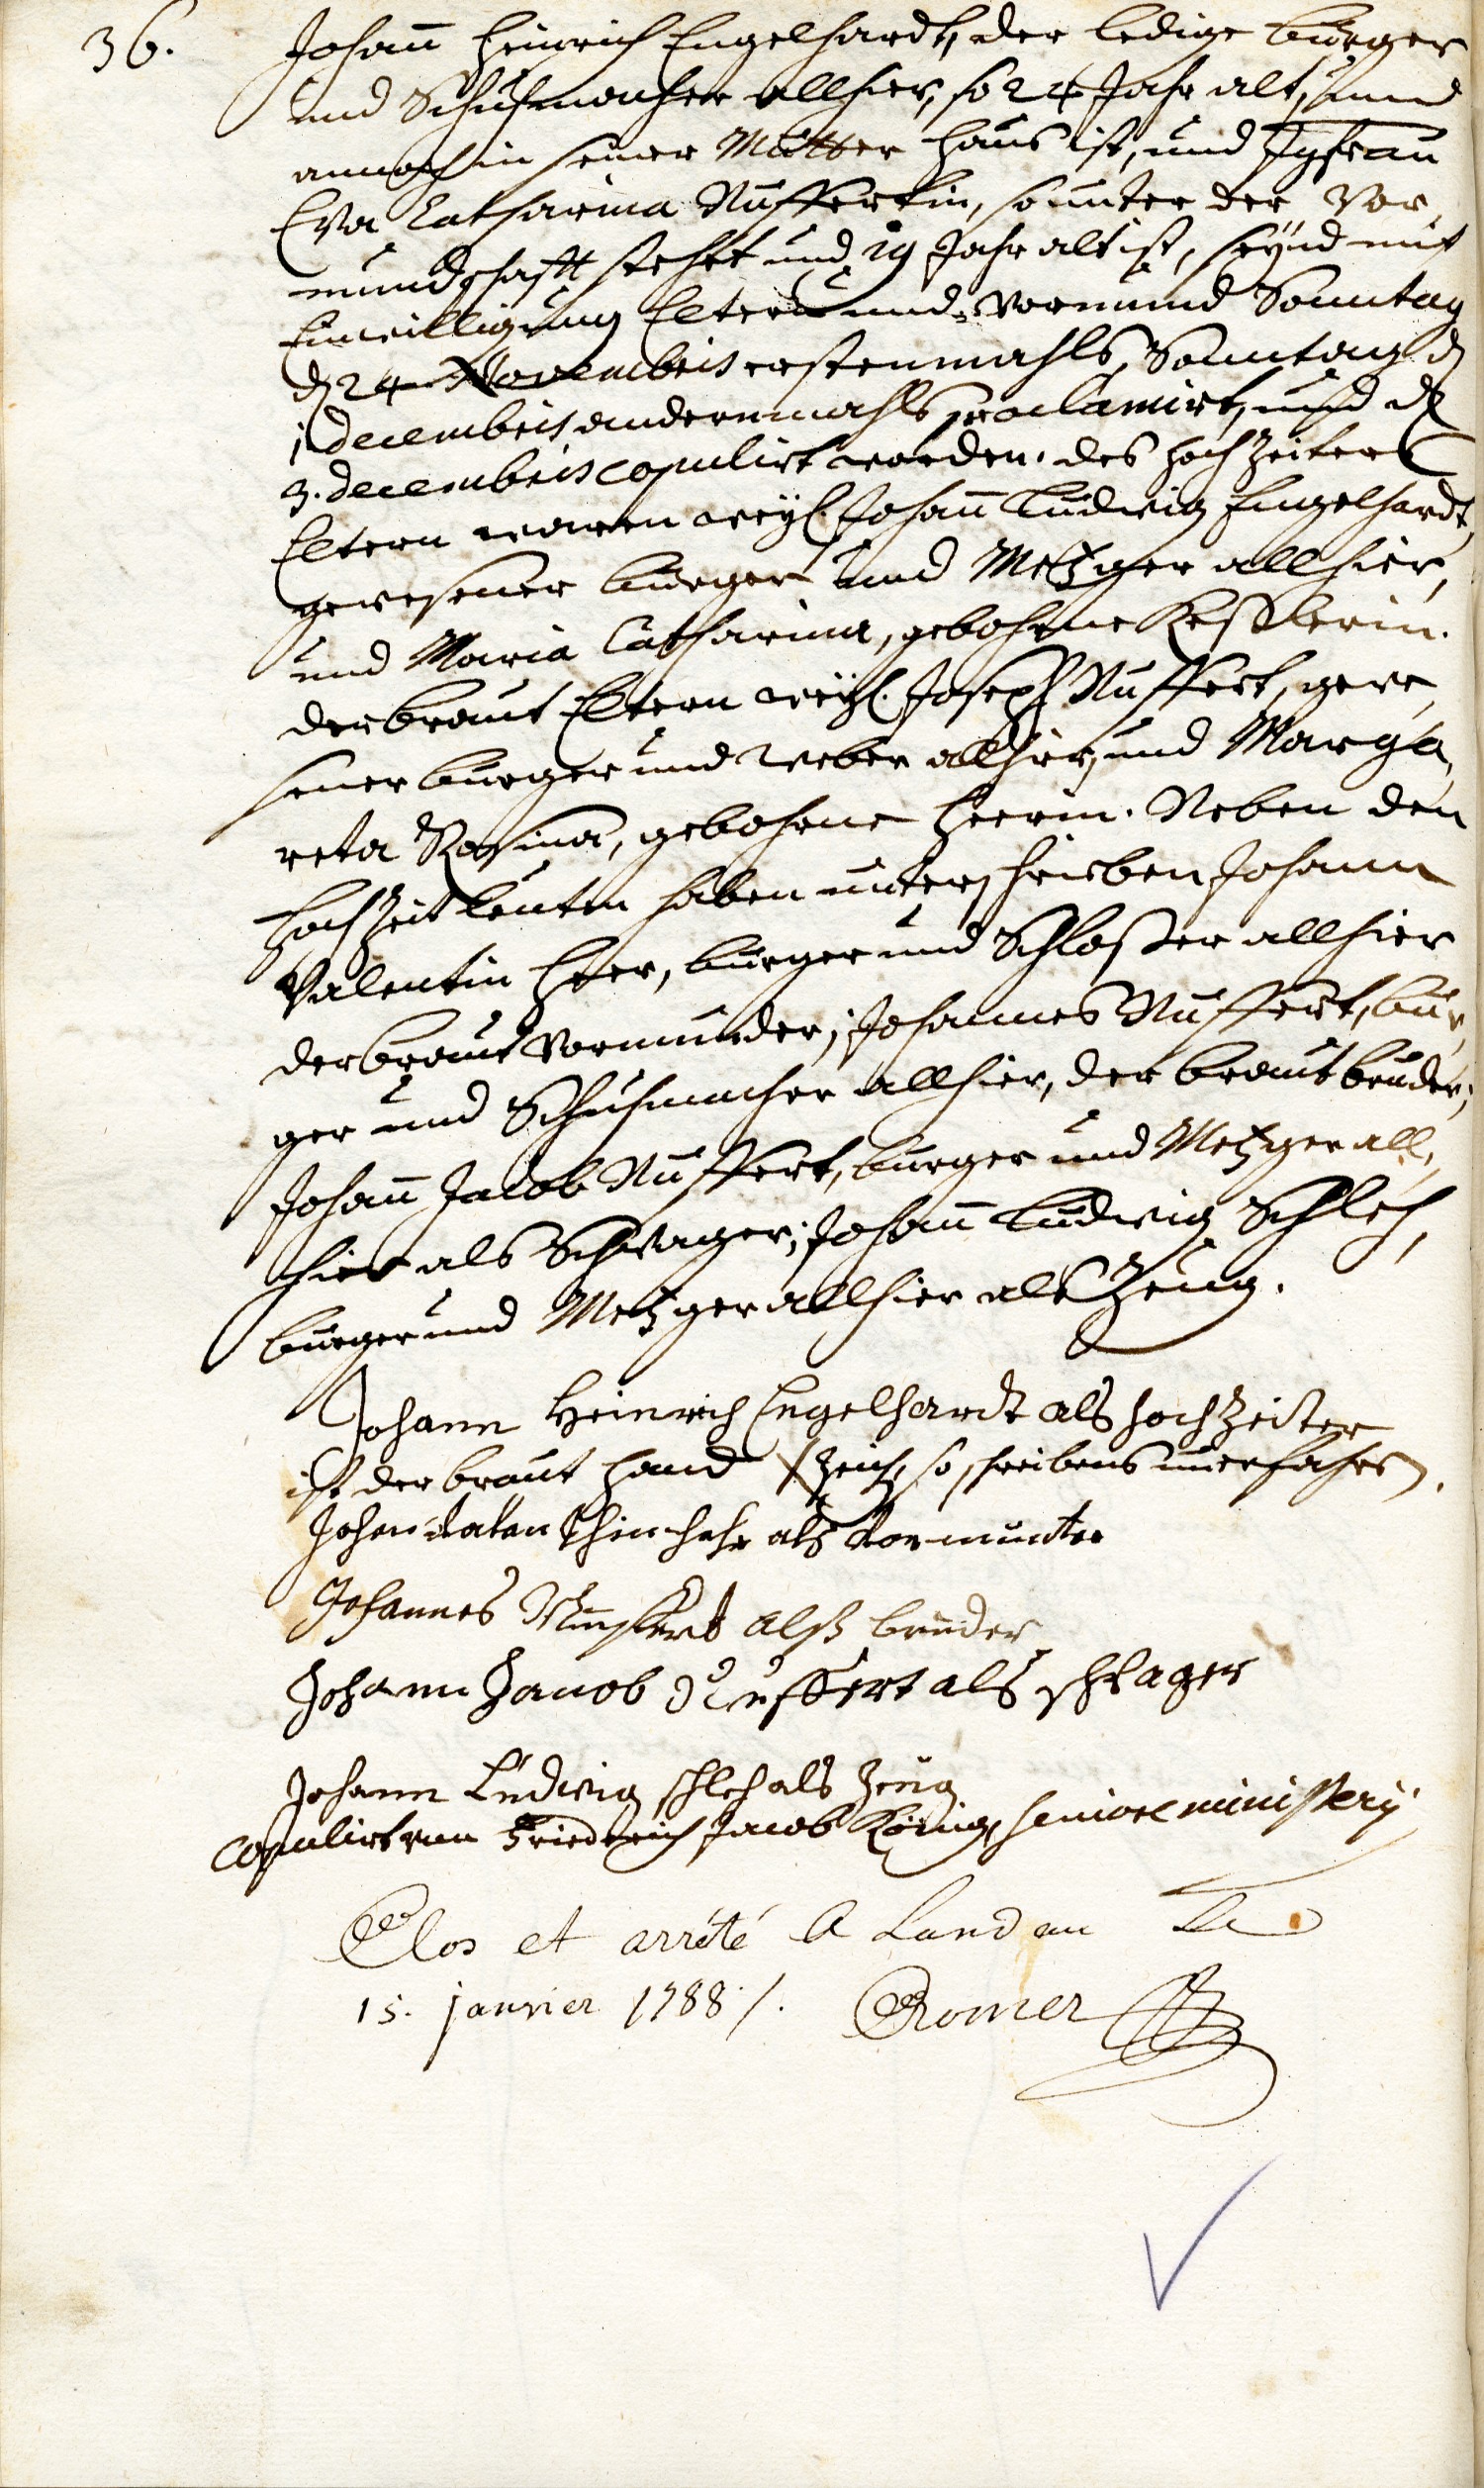 36. Johann Heinrich Engelhardt, der ledige burger
und Schuhmacher allhier, so 24 Jahr alt, und
annoch in seiner Mutter Hauß ist, und Jgfrau
Eva Catharina Nuffertin, so unter der Vor¬
mundschafft stehet und 19 Jahr alt ist, seynd mit
Einwilligung Eltern und Vormund Sonntag
d. 24. Novembris erstenmahls, Sonntag d.
1. Decembris andernmahls proclamirt, und d.
3. Decembris copulirt worden. des Hochzeiters
Eltern waren weyl. Johann Ludwig Engelhardt,
gewesener burger und Metzger allhier,
und Maria Catharina, gebohrne Kestlerin.
der braut Eltern weyl. Joseph Nuffert, gewe¬
sener burger und Weber allhier, und Marga¬
reta Rosina, gebohrne Heerin. Neben den
Hochzeitleuten haben unterschrieben Johann
Valentin Heer, burger und Schlosser allhier
der braut Vormunder; Johannes Nuffert, bur¬
ger und Schuhmacher allhier, der braut bruder;
Johann Jacob Nuffert, burger und Metzger all¬
hier als Schwager; Johann Ludwig Schleh,
burger und Metzger allhier als Zeug.
Johann Heinrich Engelhardt als hochzeiter
ist der braut Hand X Zeich, so schreibens unerfahren.
Johan als vormunter
Johannes Nuffert alß bruder
Johann Jacob Nuffert als schwager
Johann Ludwig schleh als Zeug
copulirt von Friedrich Jacob König, seniore ministerij
Clos et arrété a Landau Le
15. janvier 1788 /. Romer